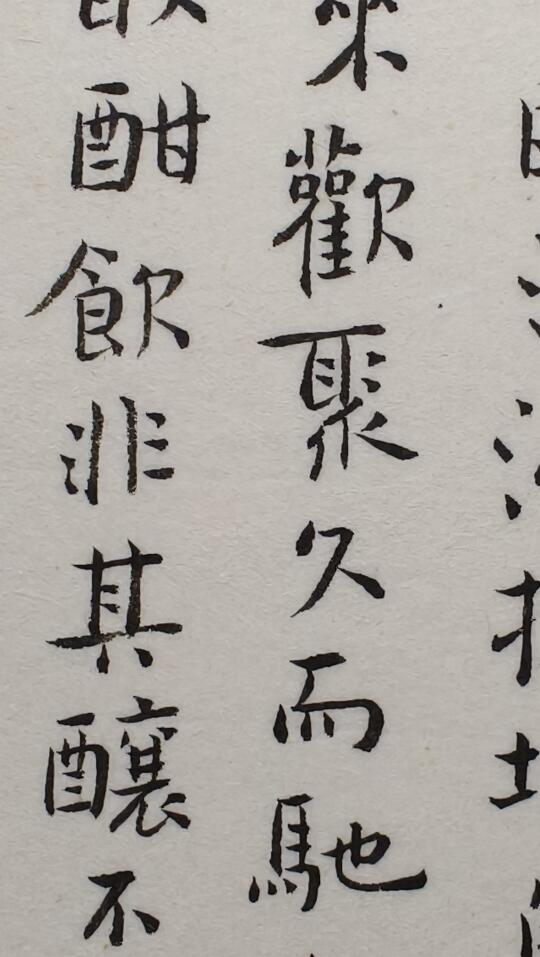 來歡聚久而馳
酣飲非其釀不